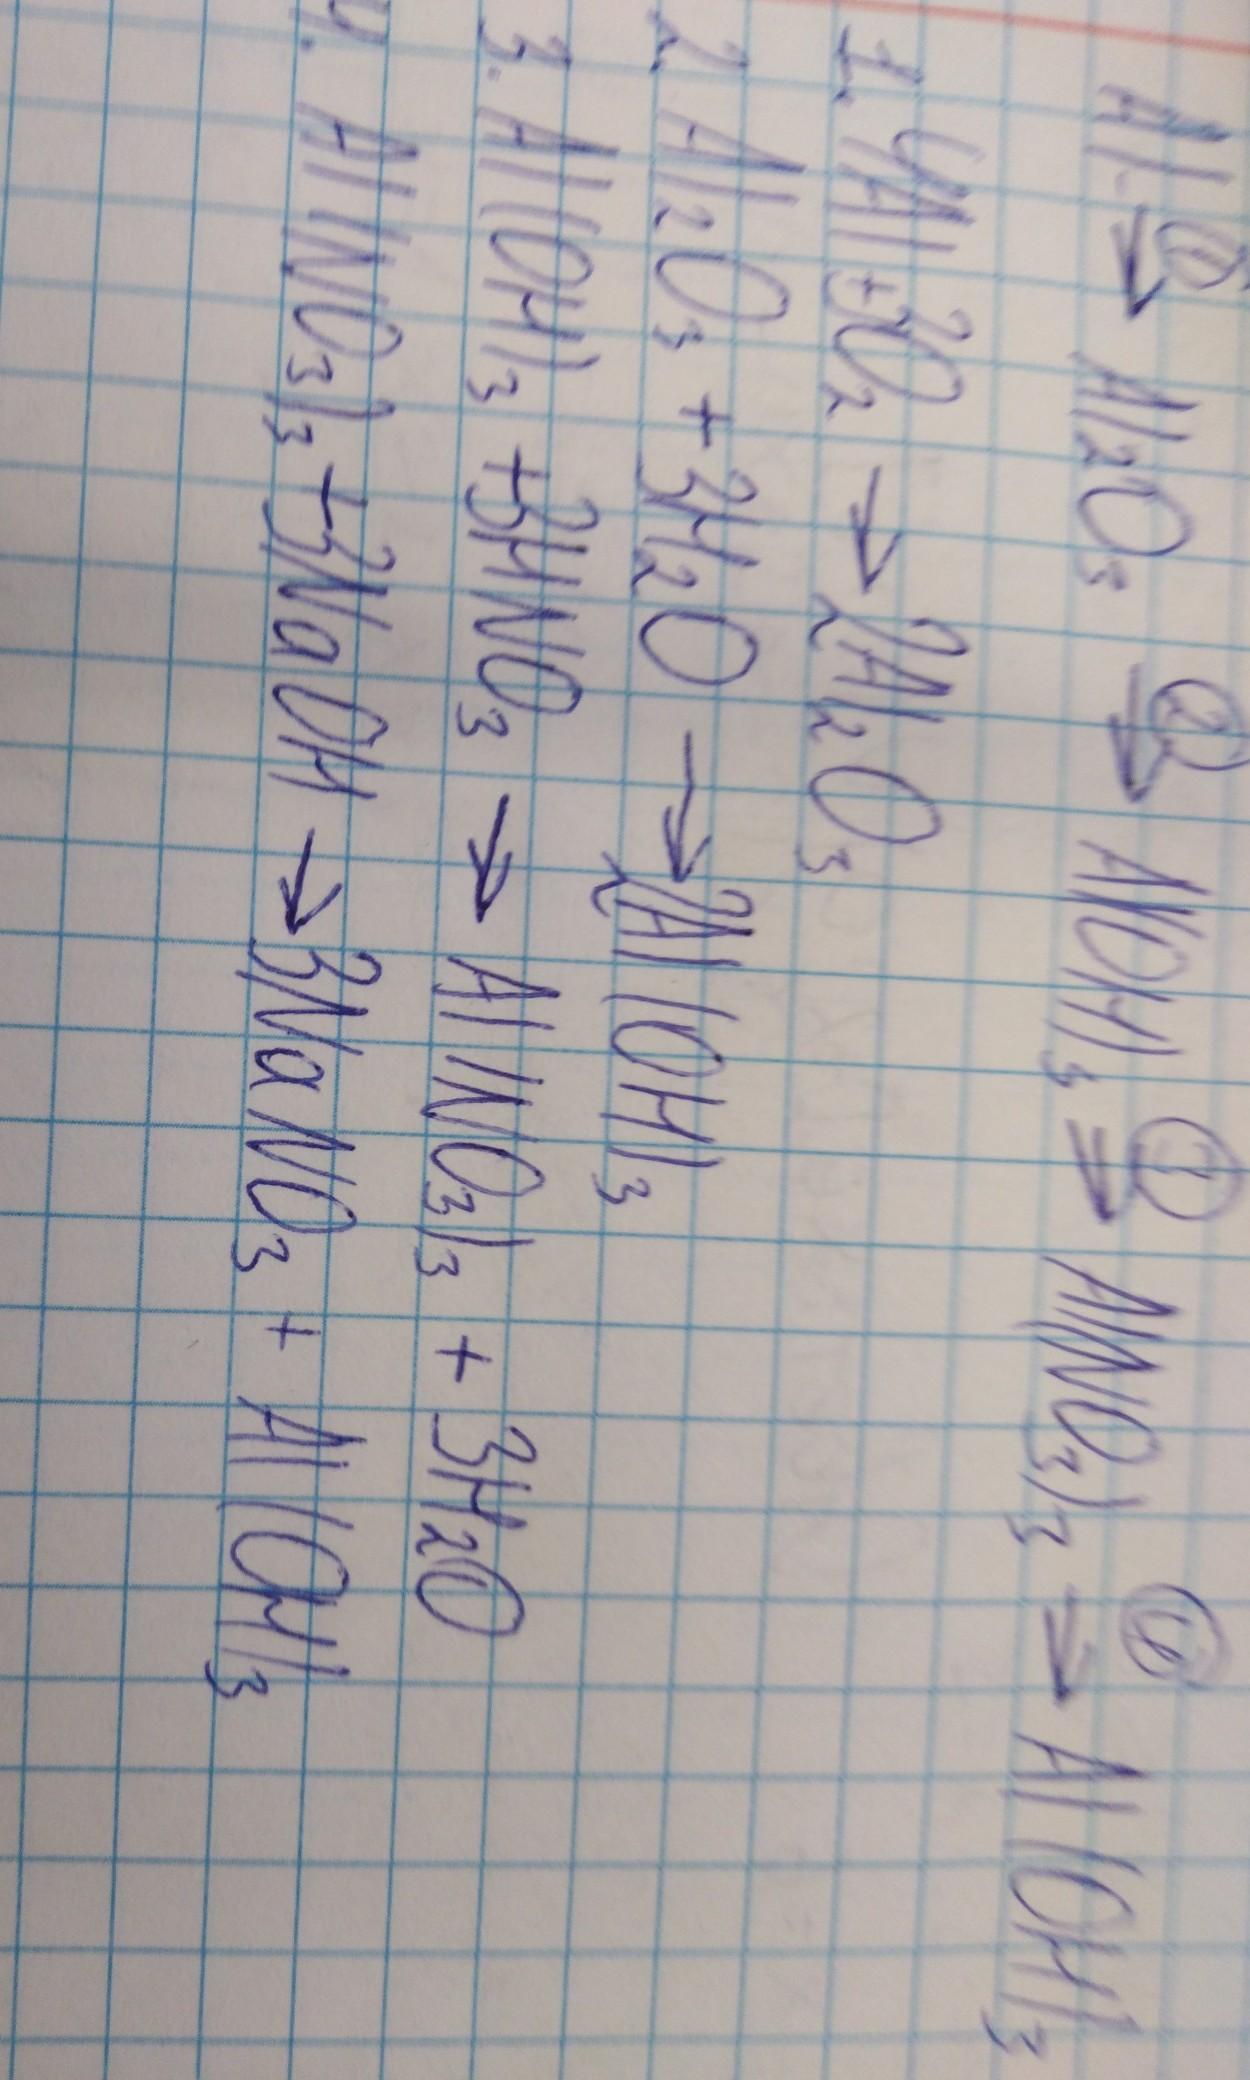 Al ① → Al₂O₃ ② → Al(OH)₃ ③ → Al(NO₃)₃ ④ → Al(OH)₃
1. 4Al + 3O₂ → 2Al₂O₃
2. Al₂O₃ + 3H₂O → 2Al(OH)₃
3. Al(OH)₃ + 3HNO₃ → Al(NO₃)₃ + 3H₂O
4. Al(NO₃)₃ + 3NaOH → 3NaNO₃ + Al(OH)₃